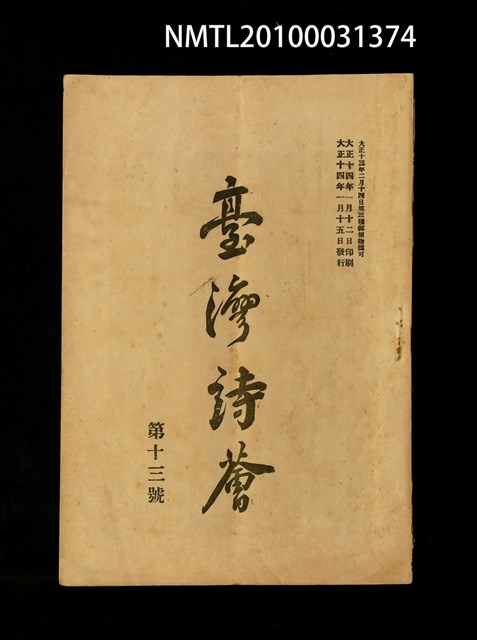 NMTL20100031374
大正十三年二月十四日第三種郵便物認可
大正十四年一月十二日印刷
大正十四年一月十五日發行
臺灣詩薈
第十三號